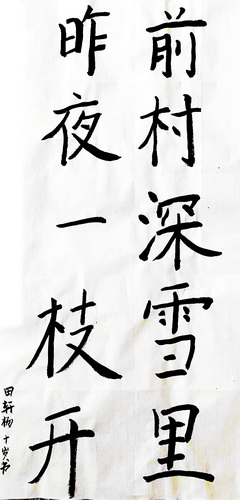 前村深雪里
昨夜一枝开
田轩杨十岁书